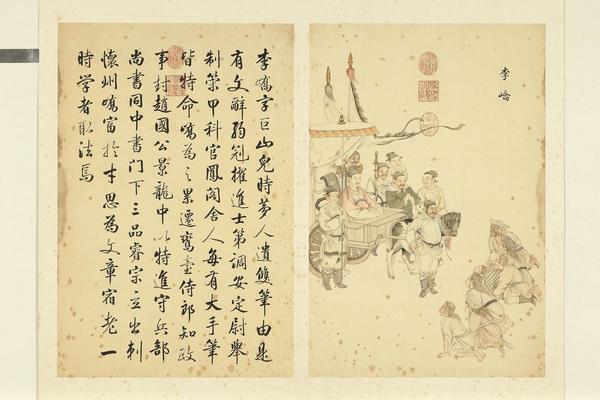 李嶠
李嶠字巨山兒時夢人遺雙筆由是
有文辭弱冠擢進士第調安定尉舉
制策甲科官鳳閣舍人每有大手筆
皆特命嶠為之累遷鸞臺侍郎知政
事封趙國公景龍中以特進守兵部
尚書同中書門下三品睿宗立出刺
懷州嶠富於才思為文章宿老一
時学者取法焉